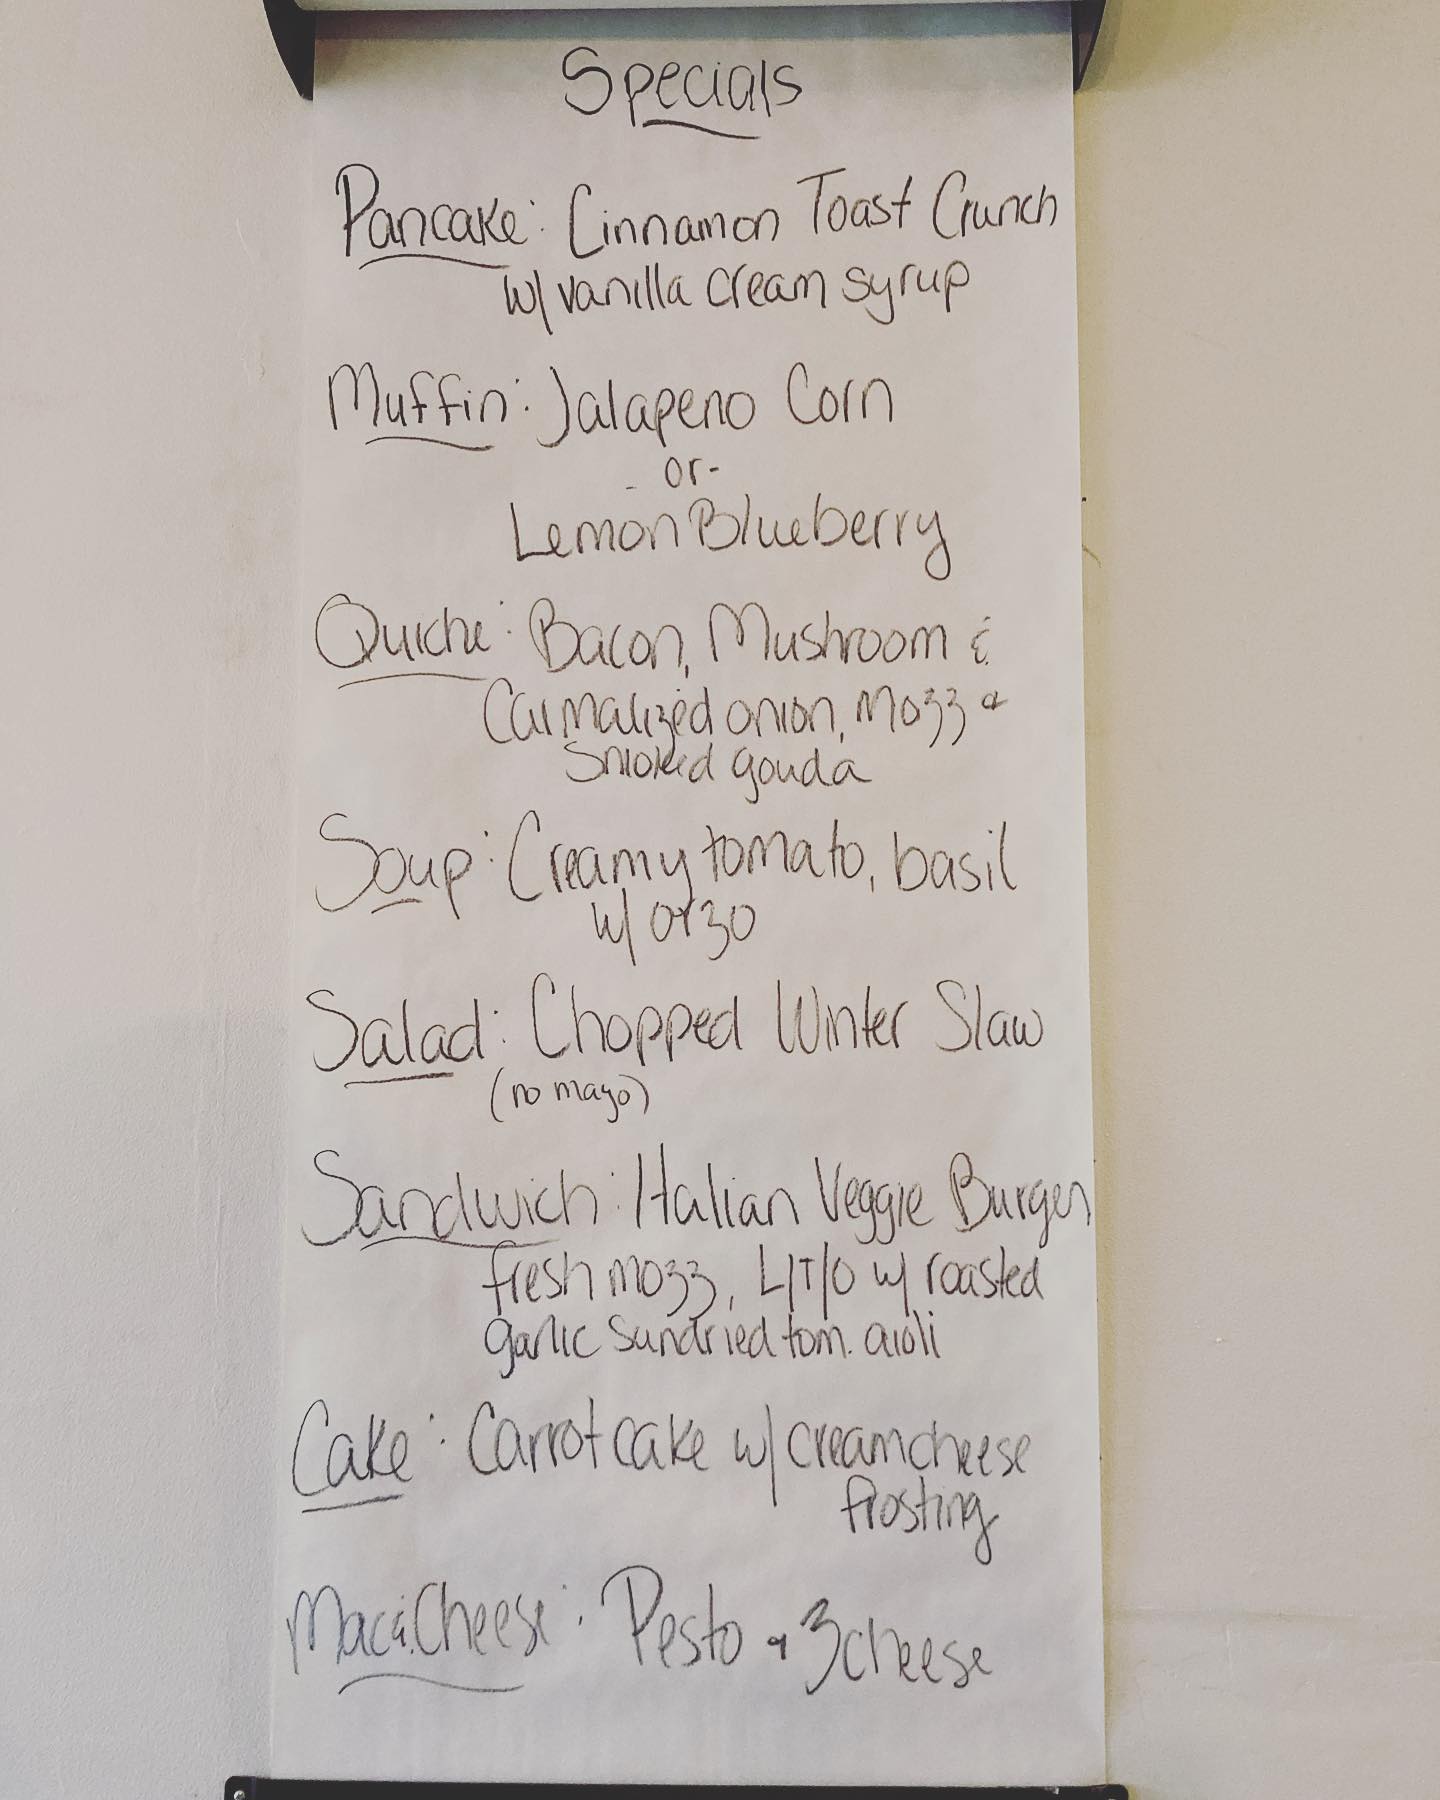 Specials
Pancake: Cinnamon Toast Crunch
w/ vanilla cream syrup
Muffin: Jalapeno Corn
- or -
Lemon Blueberry
Quiche: Bacon, Mushroom &
Carmalized onion, Mozz &
Smoked gouda
Soup: Creamy tomato, basil
w/ orzo
Salad: Chopped Winter Slaw
(no mayo)
Sandwich: Italian Veggie Burger
fresh mozz, L/T/O w/ roasted
garlic sundried tom. aioli
Cake: Carrot cake w/ creamcheese
frosting
Mac & Cheese: Pesto & 3 cheese